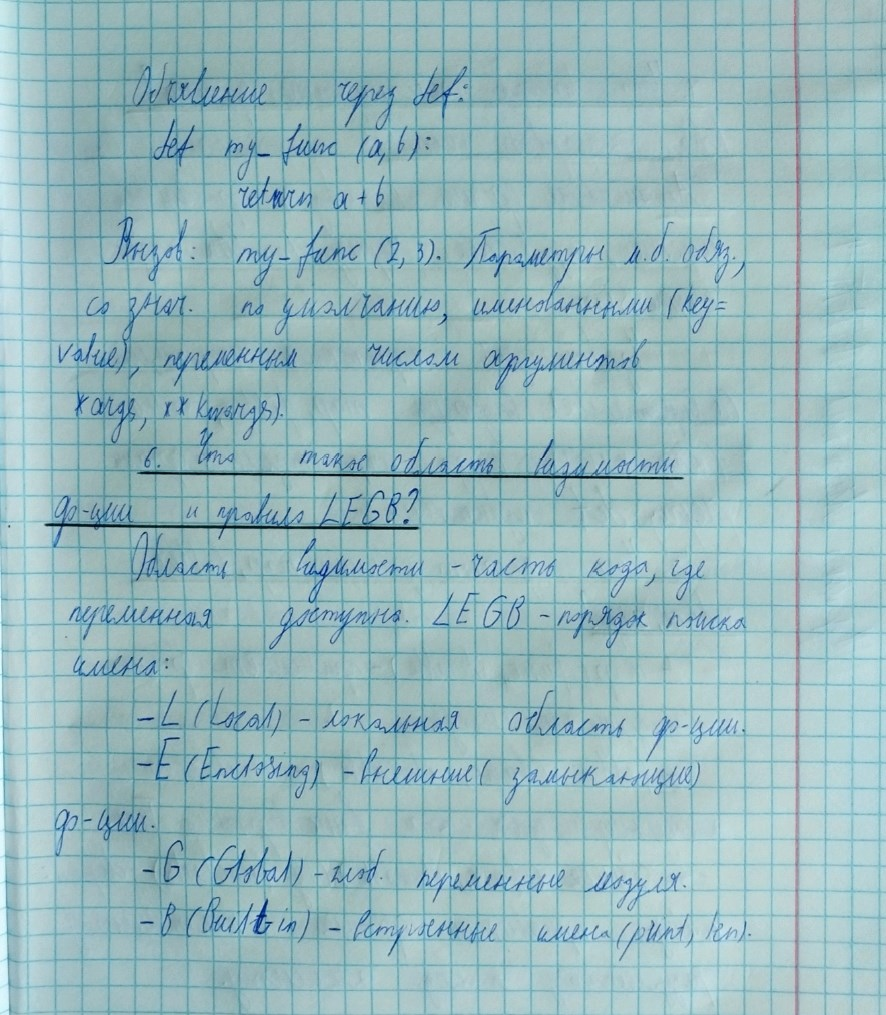 Объявление через def:
def my_func (a, b):
return a + b
Вызов: my_func (2, 3). Параметры м.б. обяз.,
со знач. по умолчанию, именованными (key=
value), переменным числом аргументов
*args, **kwargs).
6. Что такое область видимости
ф-ции и правило LEGB?
Область видимости - часть кода, где
переменная доступна. LEGB - порядок поиска
имена:
- L (Local) - локальная область ф-ции.
- E (Enclosing) - внешние (замыкающие)
ф-ции.
- G (Global) - глоб. переменные модуля.
- B (Built in) - встроенные имена (print, len).